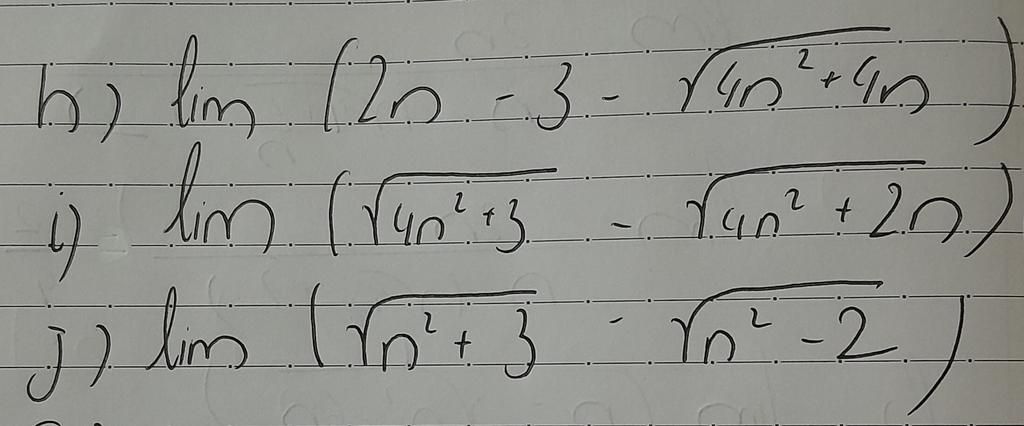 h) lim (2n - 3 - √(4n² + 4n))
i) lim (√(4n² + 3) - √(4n² + 2n))
j) lim (√(n² + 3) - √(n² - 2))